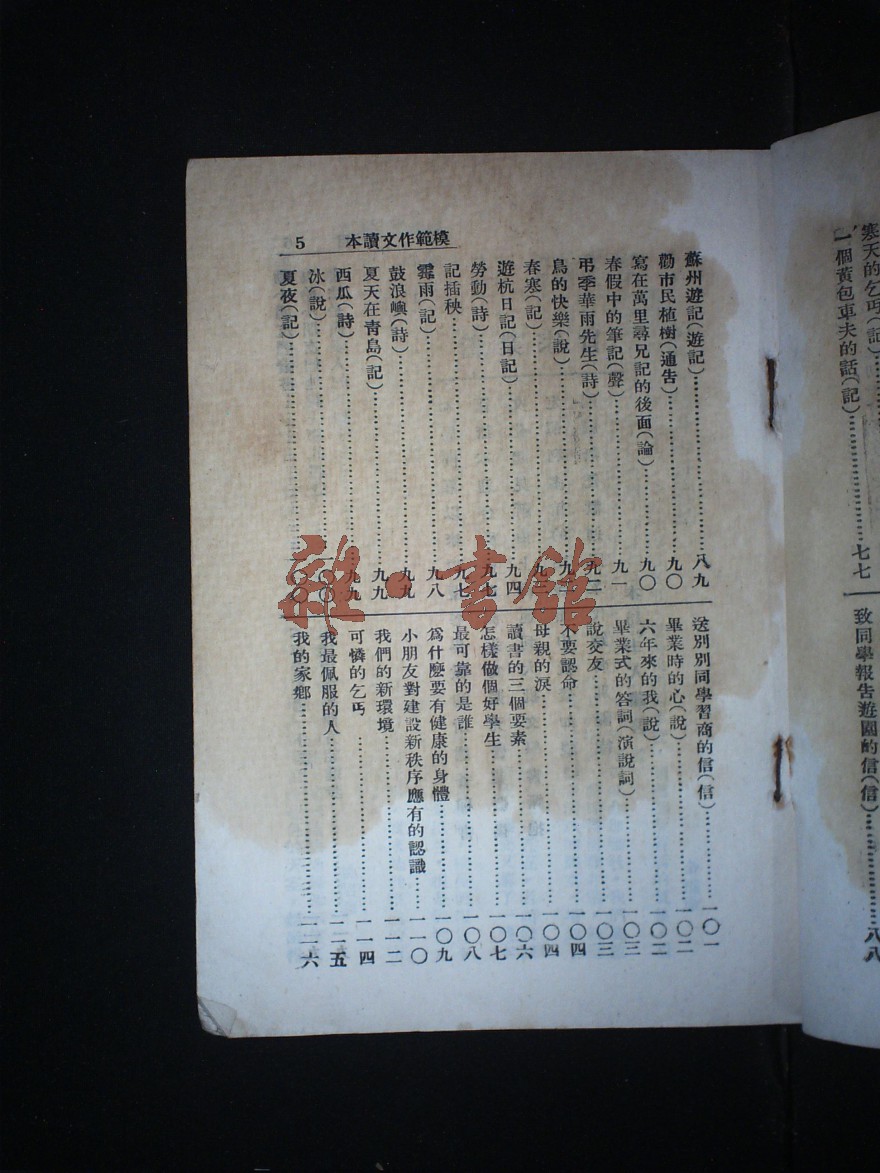 寒天的乞丐(記)
一個黃包車夫的話(記)……七七
致同學報告遊園的信(信)……八八
模範作文讀本 5
蘇州遊記(遊記)……八九
勸市民植樹(通告)……九〇
寫在萬里尋兄記的後面(論)……九〇
春假中的筆記(聲)……九一
弔季華雨先生(詩)……九二
鳥的快樂(說)……九
春寒(記)……九三
遊杭日記(日記)……九四
勞動(詩)……九七
記插秧……九七
霪雨(記)……九八
鼓浪嶼(詩)……九九
夏天在青島(記)……九九
西瓜(詩)……九九
冰(說)……一〇〇
夏夜(記)……一〇〇
送別別同學習商的信(信)……一〇一
畢業時的心(說)……一〇二
六年來的我(說)……一〇二
畢業式的答詞(演說詞)……一〇三
說交友……一〇三
不要認命……一〇四
母親的淚……一〇四
讀書的三個要素……一〇六
怎樣做個好學生……一〇七
最可靠的是誰……一〇八
爲什麼要有健康的身體……一〇九
小朋友對建設新秩序應有的認識……一一〇
我們的新環境……一一二
可憐的乞丐……一一四
我最佩服的人……一一五
我的家鄉……一一六
雜·書館